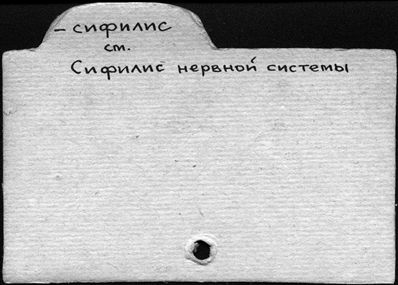 – сифилис
см.
Сифилис нервной системы